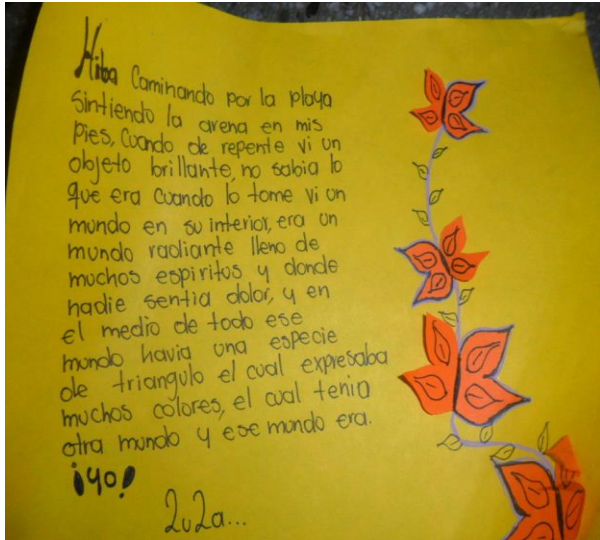 Hiba Caminando por la playa
Sintiendo la arena en mis
Pies, Cuando de repente vi un
objeto brillante, no sabia lo
que era cuando lo tome vi un
mundo en su interior, era un
mundo radiante lleno de
muchos espiritus y donde
nadie sentia dolor, y en
el medio de todo ese
mundo havia una especie
de triangulo el cual expresaba
muchos colores, el cual tenia
otra mundo y ese mundo era.
¡yo!